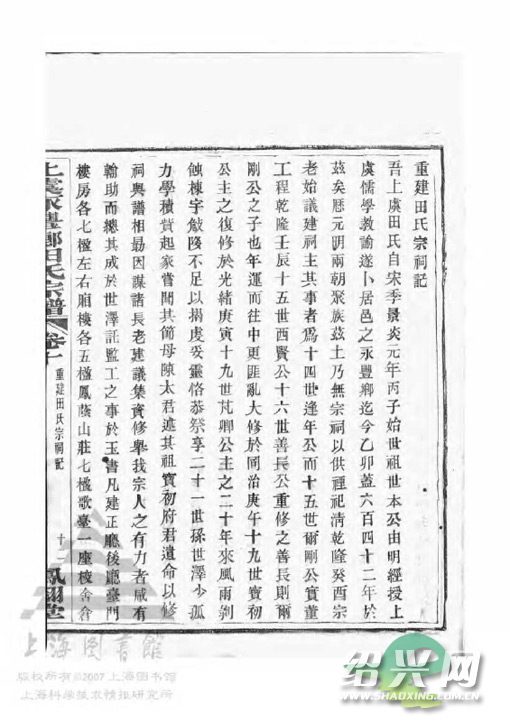 重建田氏宗祠記
吾上虞田氏自宋季景炎元年丙子始世祖世本公由明經授上
虞儒學教諭遂卜居邑之永豐鄉迄今乙卯蓋六百四十二年於
茲矣歷元明兩朝聚族茲土乃無宗祠以供禋祀清乾隆癸酉宗
老始議建祠主其事者爲十四世逢年公而十五世爾剛公實董
工程乾隆壬辰十五世西賢公十六世善長公重修之善長則爾
剛公之子也年運而往中更匪亂大修於同治庚午十九世寶初
公主之復修於光緒庚寅十九世芃卿公主之二十年來風雨剝
蝕棟宇敧陊不足以揭虔妥靈恪恭祭享二十一世孫世澤少孤
力學積貲起家嘗聞其節母陳太君述其祖寶初府君遺命以修
祠與譜相勗因謀諸長老建議集資修舉我宗人之有力者咸有
輸助而總其成於世澤託監工之事於玉書凡建正廳後廳臺門
樓房各七楹左右廂樓各五楹鳳蔭山莊七楹歌臺一座舍倉
上虞永豐鄉田氏宗譜
卷十
重建田氏宗祠記
上海图书馆
版权所有©2007 上海图书馆
上海科学技术情报研究所
绍兴网
WWW.SHAOXING.COM.CN